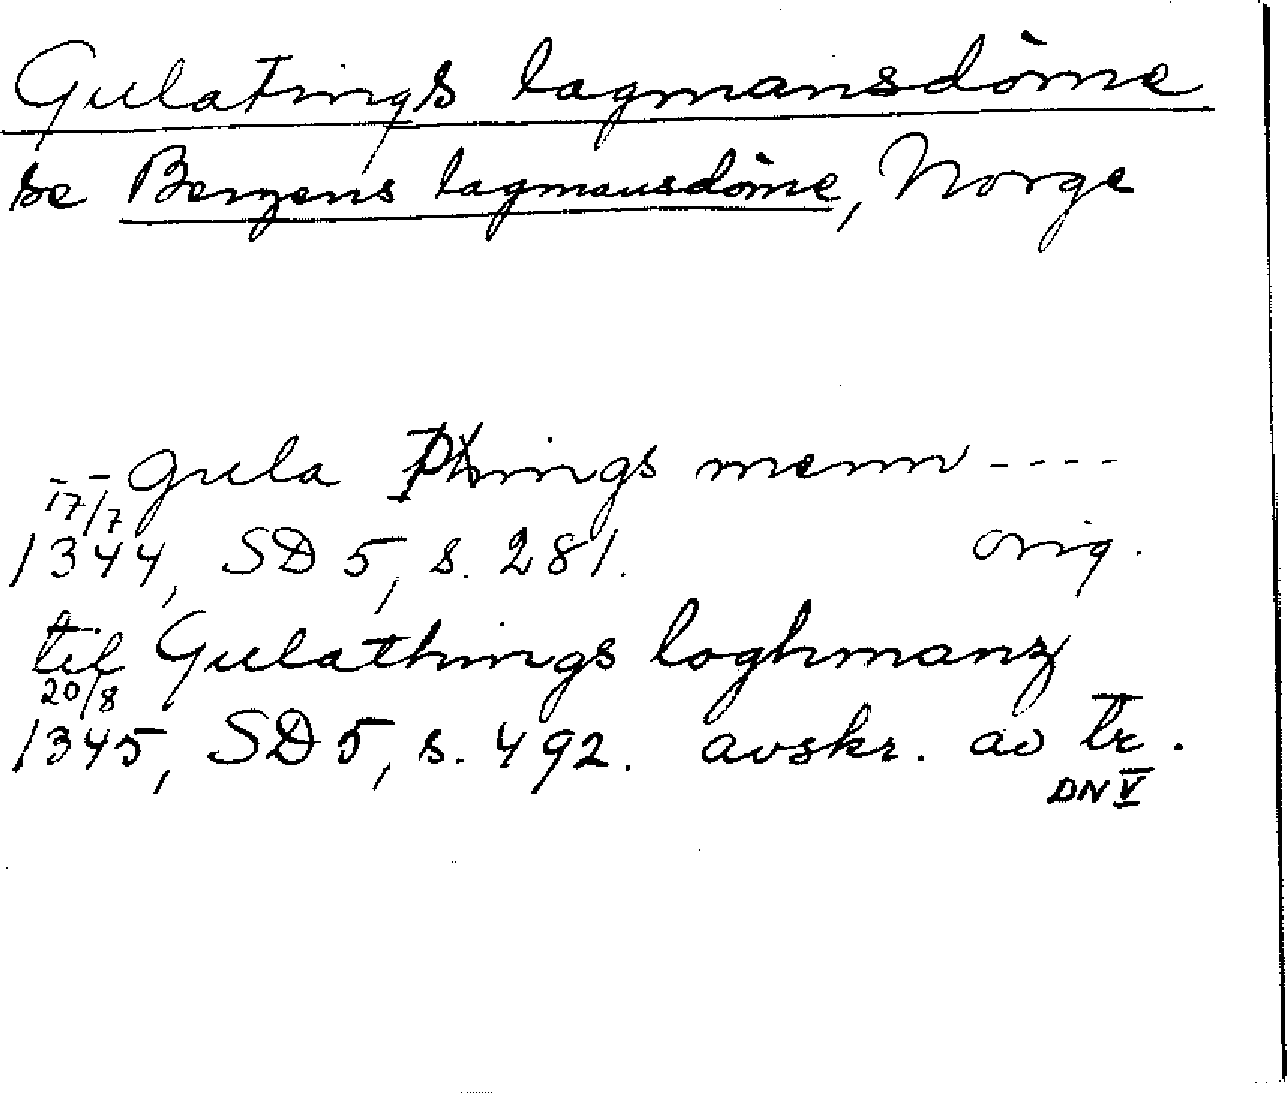 Gulatings lagmansdöme
se Bergens lagmansdöme, Norge
-- gula Þings menn ----
17/7
1344, SD 5, s. 281. orig.
til Gulathings loghmanz
20/8
1345, SD 5, s. 492. avskr. av tr.
DN V